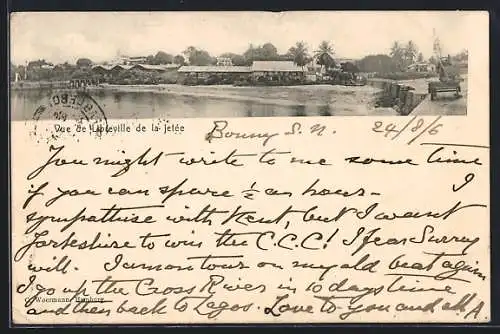 Vue de Libreville de la jetée
Bonny S.N. 24/8/6
You might write to me some time
if you can spare ½ an hour - I
sympathise with Kent, but I want
Yorkshire to win the C.C.C! I fear Surrey
will. I am on tour on my old beat again
I go up the Cross River in 10 days time
C. Woermann, Hamburg.
and then back to Lagos. Love to you and all A.